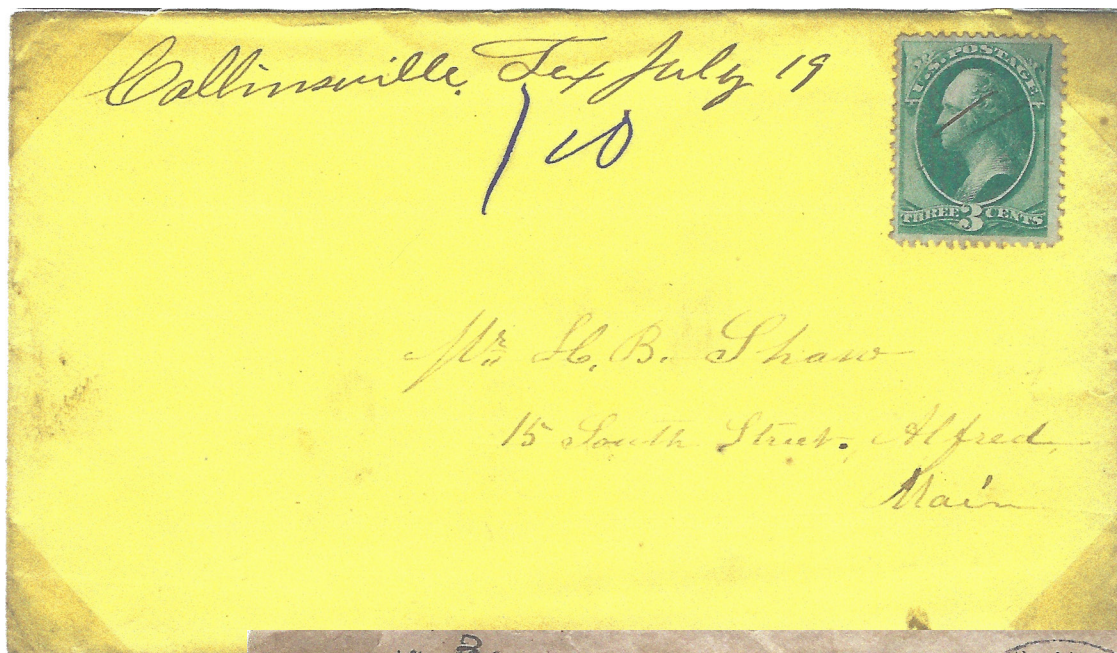 Collinsville, Tex July 19
10
U.S. POSTAGE
THREE 3 CENTS
Mr. H. B. Shaw
15 South Street. Alfred,
Main